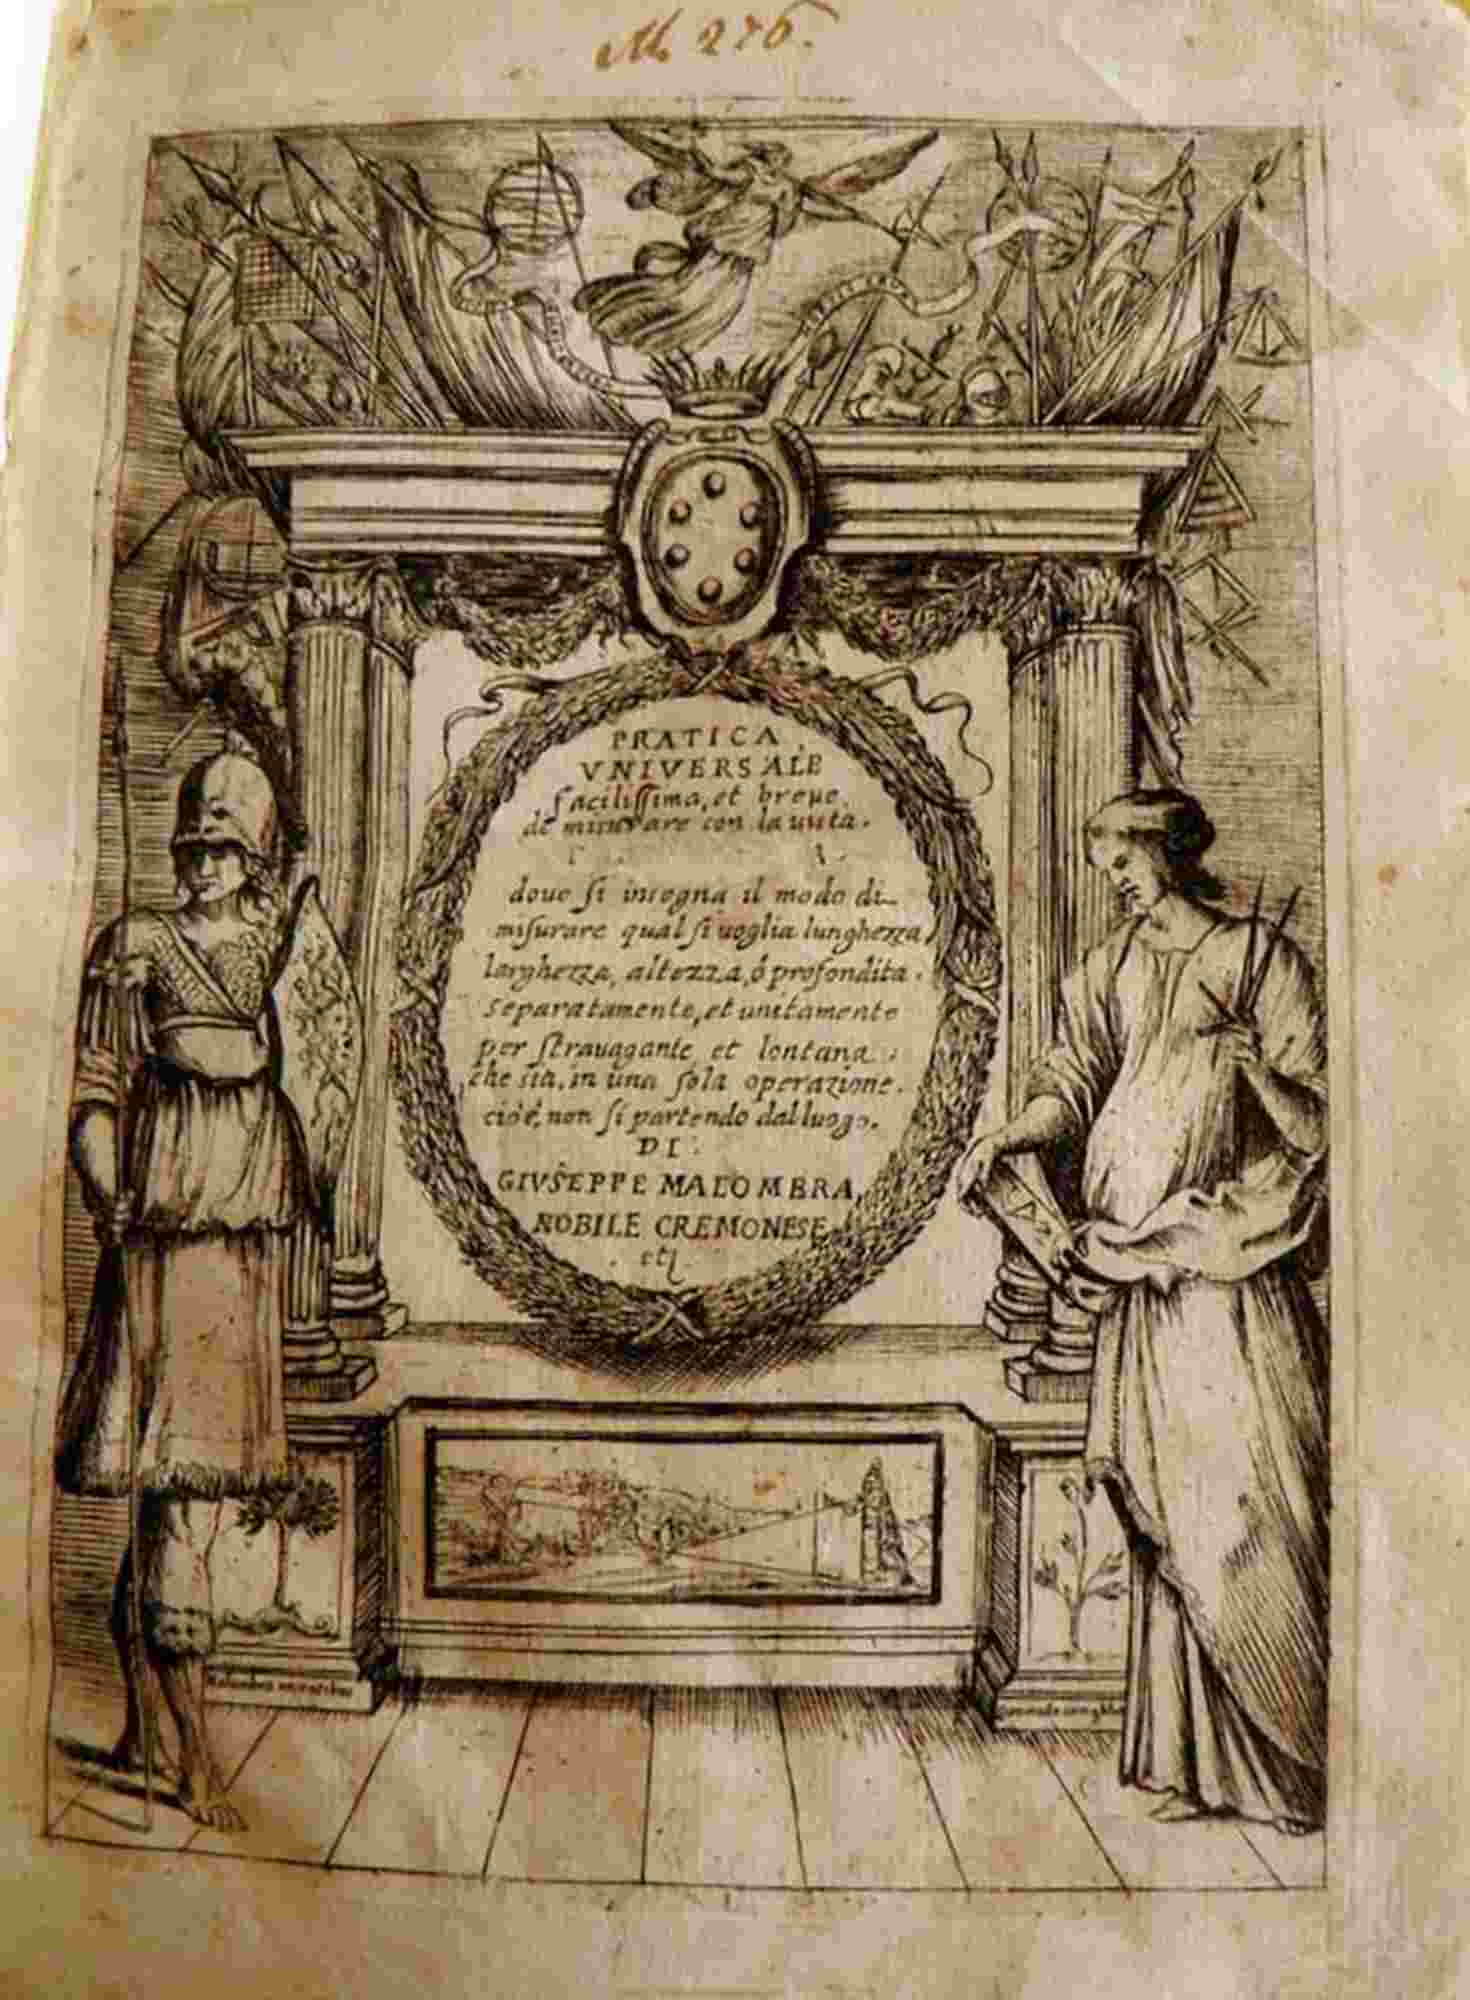 M 276.
PRATICA
VNIVERSALE
facilissima, et breue
de misurare con la uista.
doue si insegna il modo di
misurare qual si uoglia lunghezza,
larghezza, altezza, ó profondita
separatamente, et unitamente
per strauagante et lontana
che sia, in una sola operazione.
cioè, non si partendo dal luogo.
DI
GIVSEPPE MALOMBRA,
NOBILE CREMONESE
etc